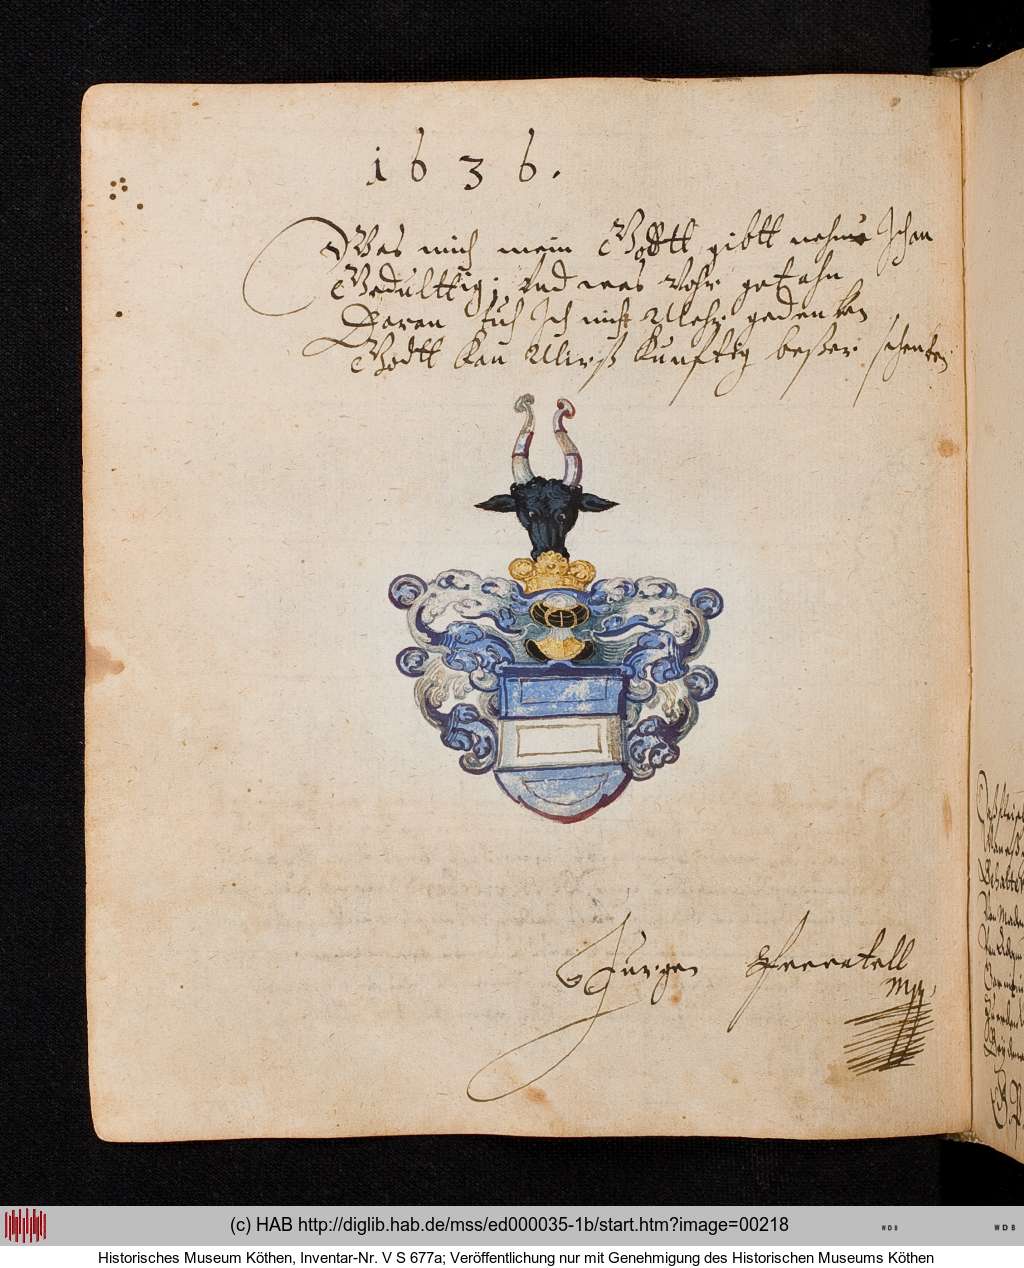 1636.
Was mich mein Gott gibtt nehme Ich an
Gedulttig; vnd was Vohr getahn
Daran tuh Ich nicht Mehr gedenken
Godtt kan Mirß kunfftig beßer schenken
Jurgen
mpp
(c) HAB http://diglib.hab.de/mss/ed000035-1b/start.htm?image=00218
WDB
WDB
Historisches Museum Köthen, Inventar-Nr. V S 677a; Veröffentlichung nur mit Genehmigung des Historischen Museums Köthen